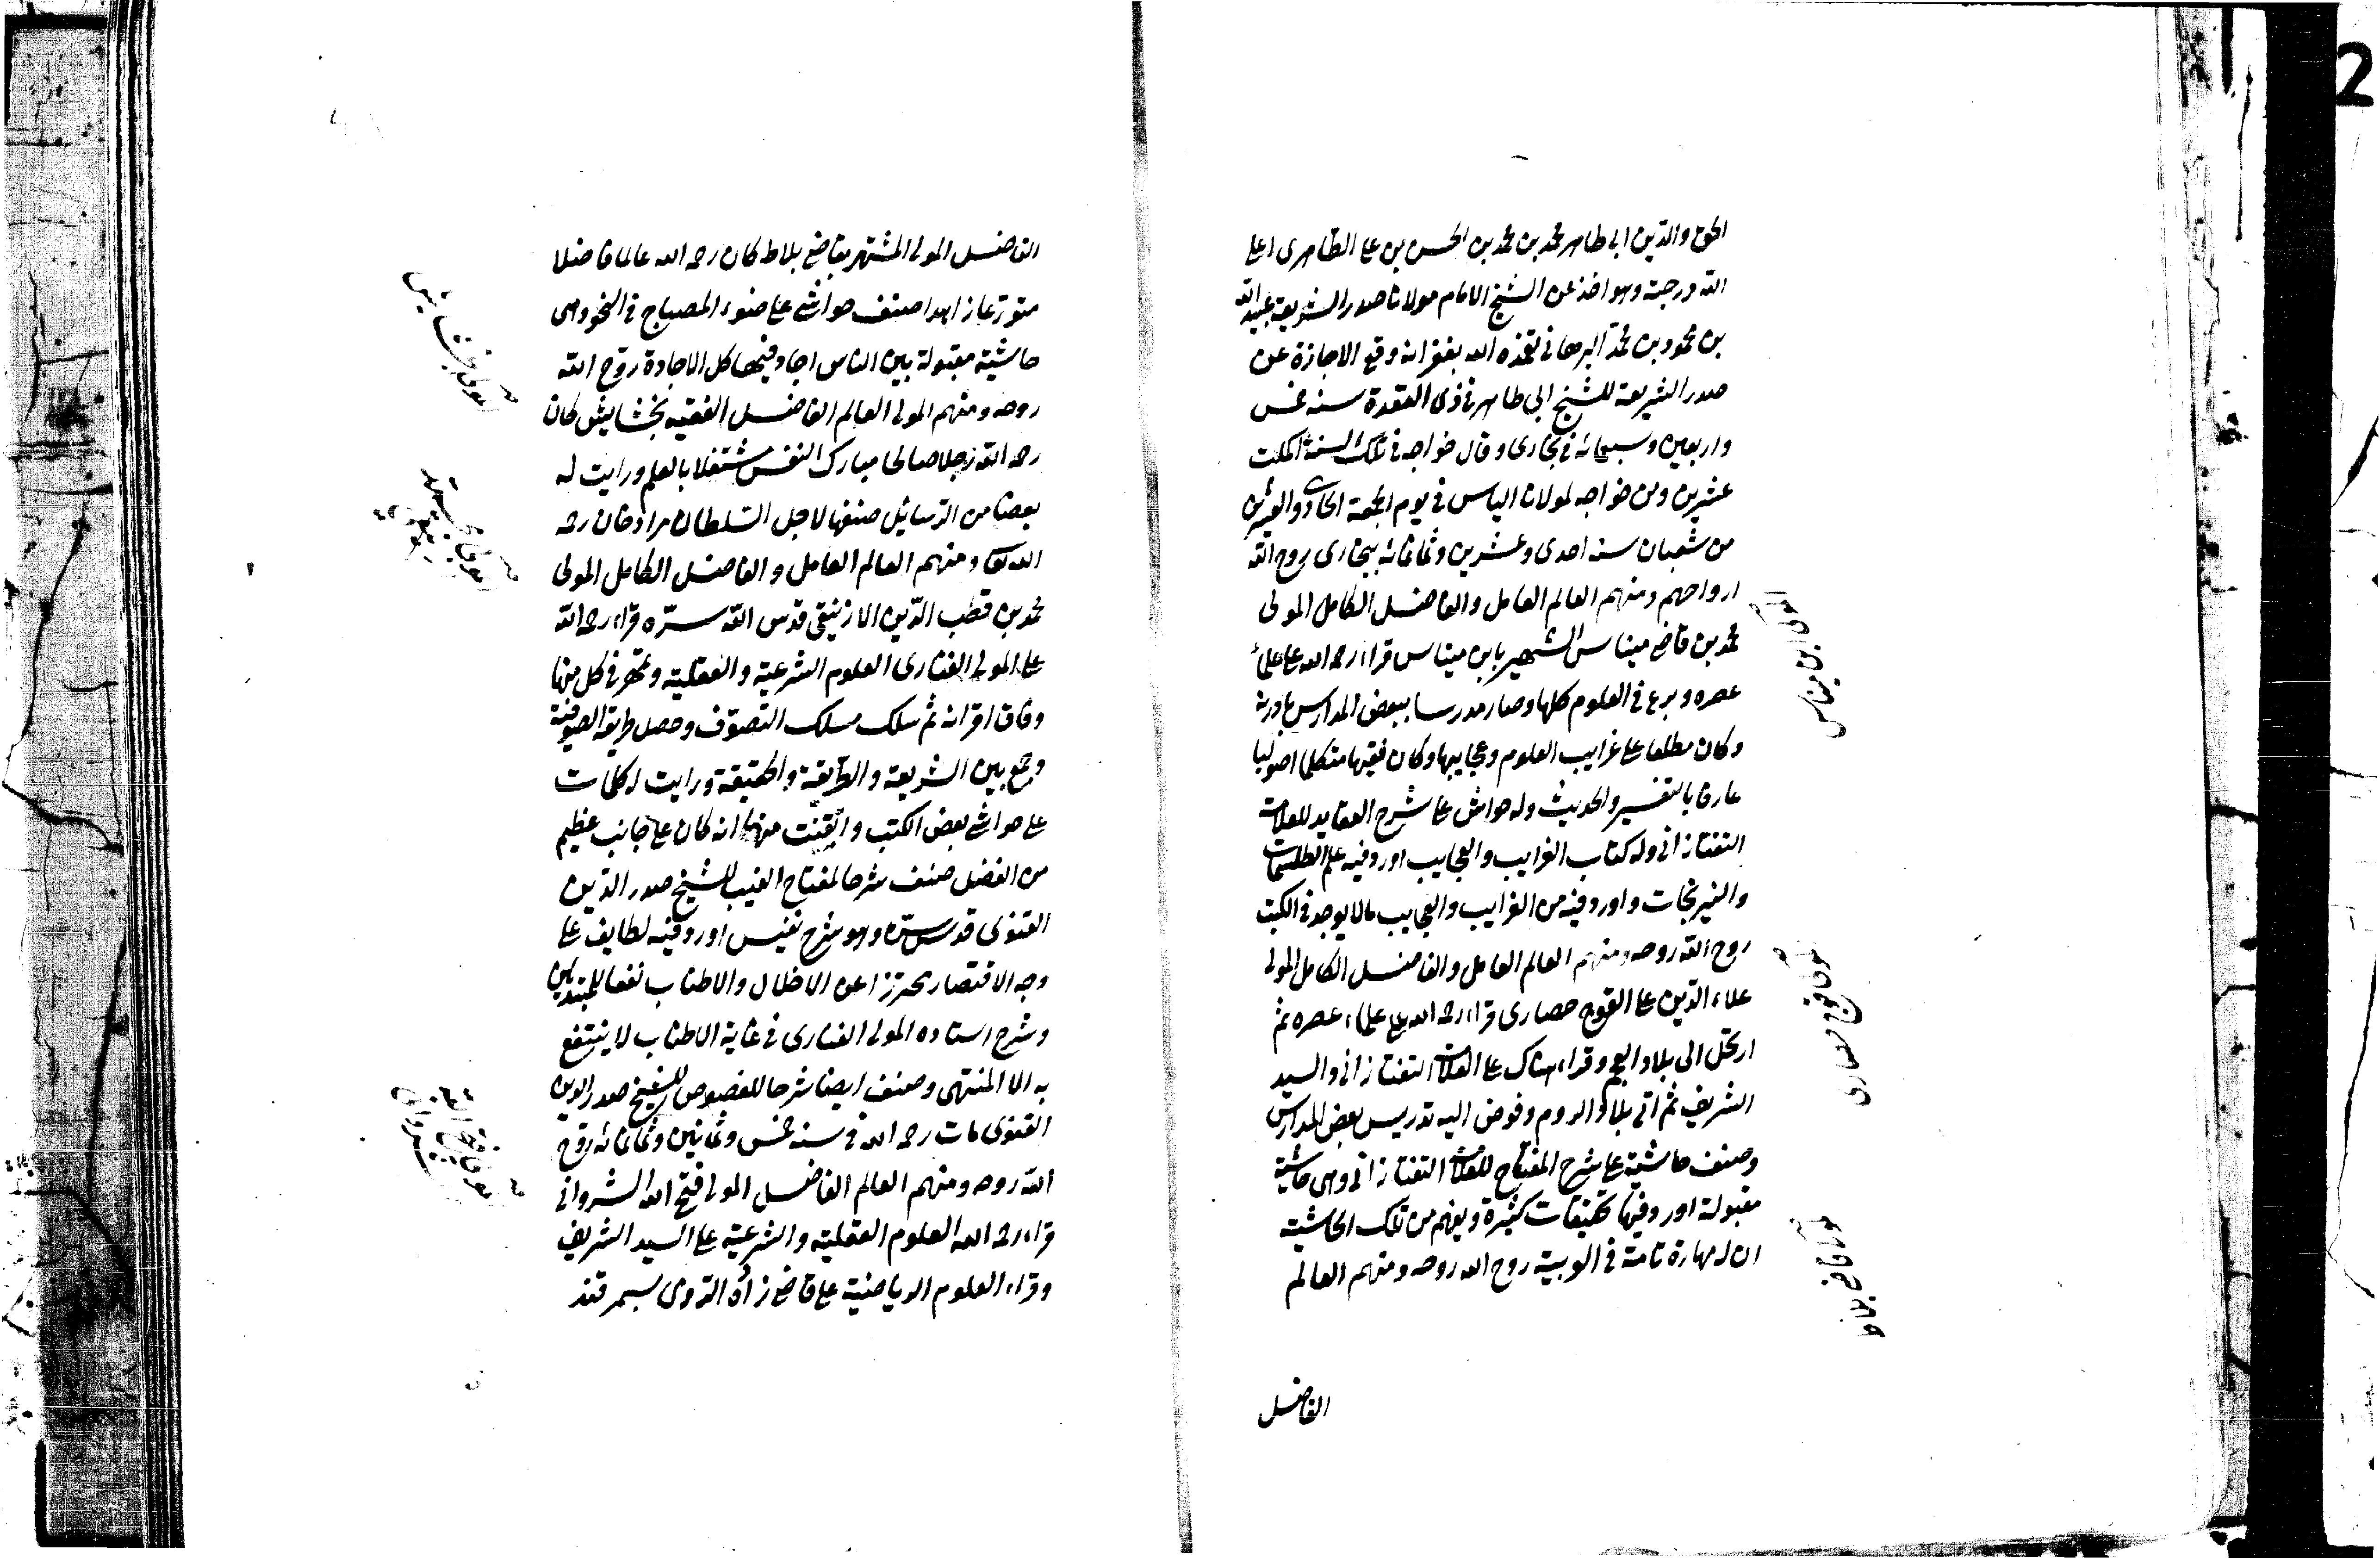 الحق والدين ابى طاهر محمد بن محمد بن الحسن بن على الطاهرى اعلى
الله درجته وهو اخذ عن الشيخ الامام مولانا صدر الشريعة عبيد الله
بن محمود بن محمد البرهانى تغمده الله بغفرانه وقع الاجازة عن
صدر الشريعة للشيخ ابى طاهر فى ذى القعدة سنه خمس
واربعين وسبعمائه فى بخارى وقال خواجه فى تلك السنة اكملت
عشرين ومن خواجه لمولانا الياس فى يوم الجمعة الحادى والعشرين
من شعبان سنه احدى وعشرين وثمانمائه ببخارى روح الله
ارواحهم ومنهم العالم العامل والفاضل الكامل المولى
محمد بن قاضى ميناس الشهير بابن ميناس قراء رحمه الله على علماء
عصره وبرع فى العلوم كلها وصار مدرسا ببعض المدارس بادرنة
وكان مطلعا على غرايب العلوم وعجايبها وكان فقيها متكلما اصوليا
عارفا بالتفسير والحديث وله حواش على شرح العقايد للعلامة
التفتازانى وله كتاب الغرايب والعجايب اورد فيه علم الطلسمات
والنيرنجات واورد فيه من الغرايب والعجايب مالا يوجد فى الكتب
روح الله روحه ومنهم العالم العامل والفاضل الكامل المولى
علاء الدين على القوج حصارى قراء رحمه الله على علماء عصره ثم
ارتحل الى بلاد العجم وقراء هناك على العلامة التفتازانى والسيد
الشريف ثم اتى بلاد الروم وفوض اليه تدريس بعض المدارس
وصنف حاشية على شرح المفتاح للعلامة التفتازانى وهى حاشية
مقبولة اورد فيها تحقيقات كثيرة ويفهم من تلك الحاشية
ان له مهارة تامة فى العربية روح الله روحه ومنهم العالم
الفاضل
المولى ابن ميناس
مولى قوج حصارى
مولى قاضى بلاط
الفاضل المولى المشتهر بقاضى بلاط كان رحمه الله عالما فاضلا
متورعا زاهدا صنف حواشى على ضوء المصباح فى النحو وهى
حاشية مقبولة بين الناس اجاد فيها كل الاجادة روح الله
روحه ومنهم المولى العالم الفاضل الفقيه بخشايش كان
رحمه الله رجلا صالحا مبارك النفس مشتغلا بالعلم ورايت له
بعضا من الرسائل صنفها لاجل السلطان مراد خان رحمه
الله تعالى ومنهم العالم العامل والفاضل الكامل المولى
محمد بن قطب الدين الازنيقى قدس الله سره قراء رحمه الله
على المولى الفنارى العلوم الشرعية والعقلية وتمهر فى كل منها
وفاق اقرانه ثم سلك مسلك التصوف وحصل طريقة الصوفية
وجمع بين الشريعة والطريقة والحقيقة ورايت له كلمات
على حواشى بعض الكتب وايقنت منها انه كان على جانب عظيم
من الفضل صنف شرحا لمفتاح الغيب للشيخ صدر الدين
القنوى قدس سره وهو شرح نفيس اورد فيه لطايف على
وجه الاقتصار محترزا عن الاخلال والاطناب نفعا للمبتدئين
وشرح استاده المولى الفنارى فى غاية الاطناب لا ينتفع
به الا المنتهى وصنف ايضا شرحا للفصوص للشيخ صدر الدين
القنوى مات رحمه الله فى سنه خمس وثمانين وثمانمائه روح
الله روحه ومنهم العالم الفاضل المولى فتح الله الشروانى
قراء رحمه الله العلوم العقلية والشرعية على السيد الشريف
وقراء العلوم الرياضية على قاضى زاده الرومى بسمرقند
المولى بخشايش
مولى فتح الله شروانى